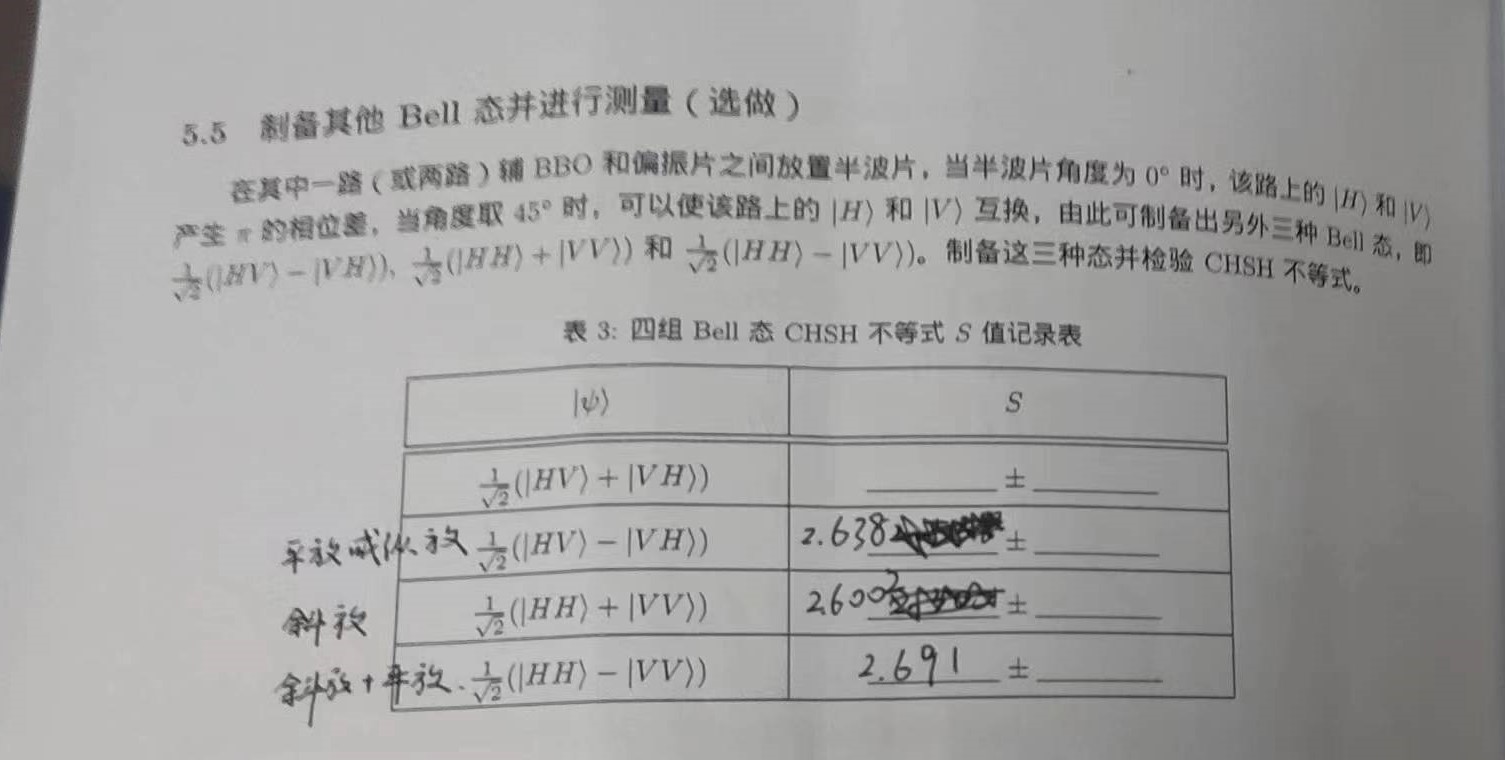 5.5 制备其他 Bell 态并进行测量（选做）
在其中一路（或两路）辅 BBO 和偏振片之间放置半波片，当半波片角度为 0° 时，该路上的 |H⟩ 和 |V⟩
产生 π 的相位差，当角度取 45° 时，可以使该路上的 |H⟩ 和 |V⟩ 互换，由此可制备出另外三种 Bell 态，即
1/√2(|HV⟩ − |VH⟩)、1/√2(|HH⟩ + |VV⟩) 和 1/√2(|HH⟩ − |VV⟩)。制备这三种态并检验 CHSH 不等式。
表 3: 四组 Bell 态 CHSH 不等式 S 值记录表
|ψ⟩ S
1/√2(|HV⟩ + |VH⟩) ______ ± ______
平放或 放 1/√2(|HV⟩ − |VH⟩) 2.638 ± ______
斜放 1/√2(|HH⟩ + |VV⟩) 2.600 ± ______
斜放+平放 1/√2(|HH⟩ − |VV⟩) 2.691 ± ______